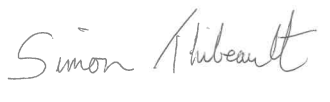 Simon Thibeault